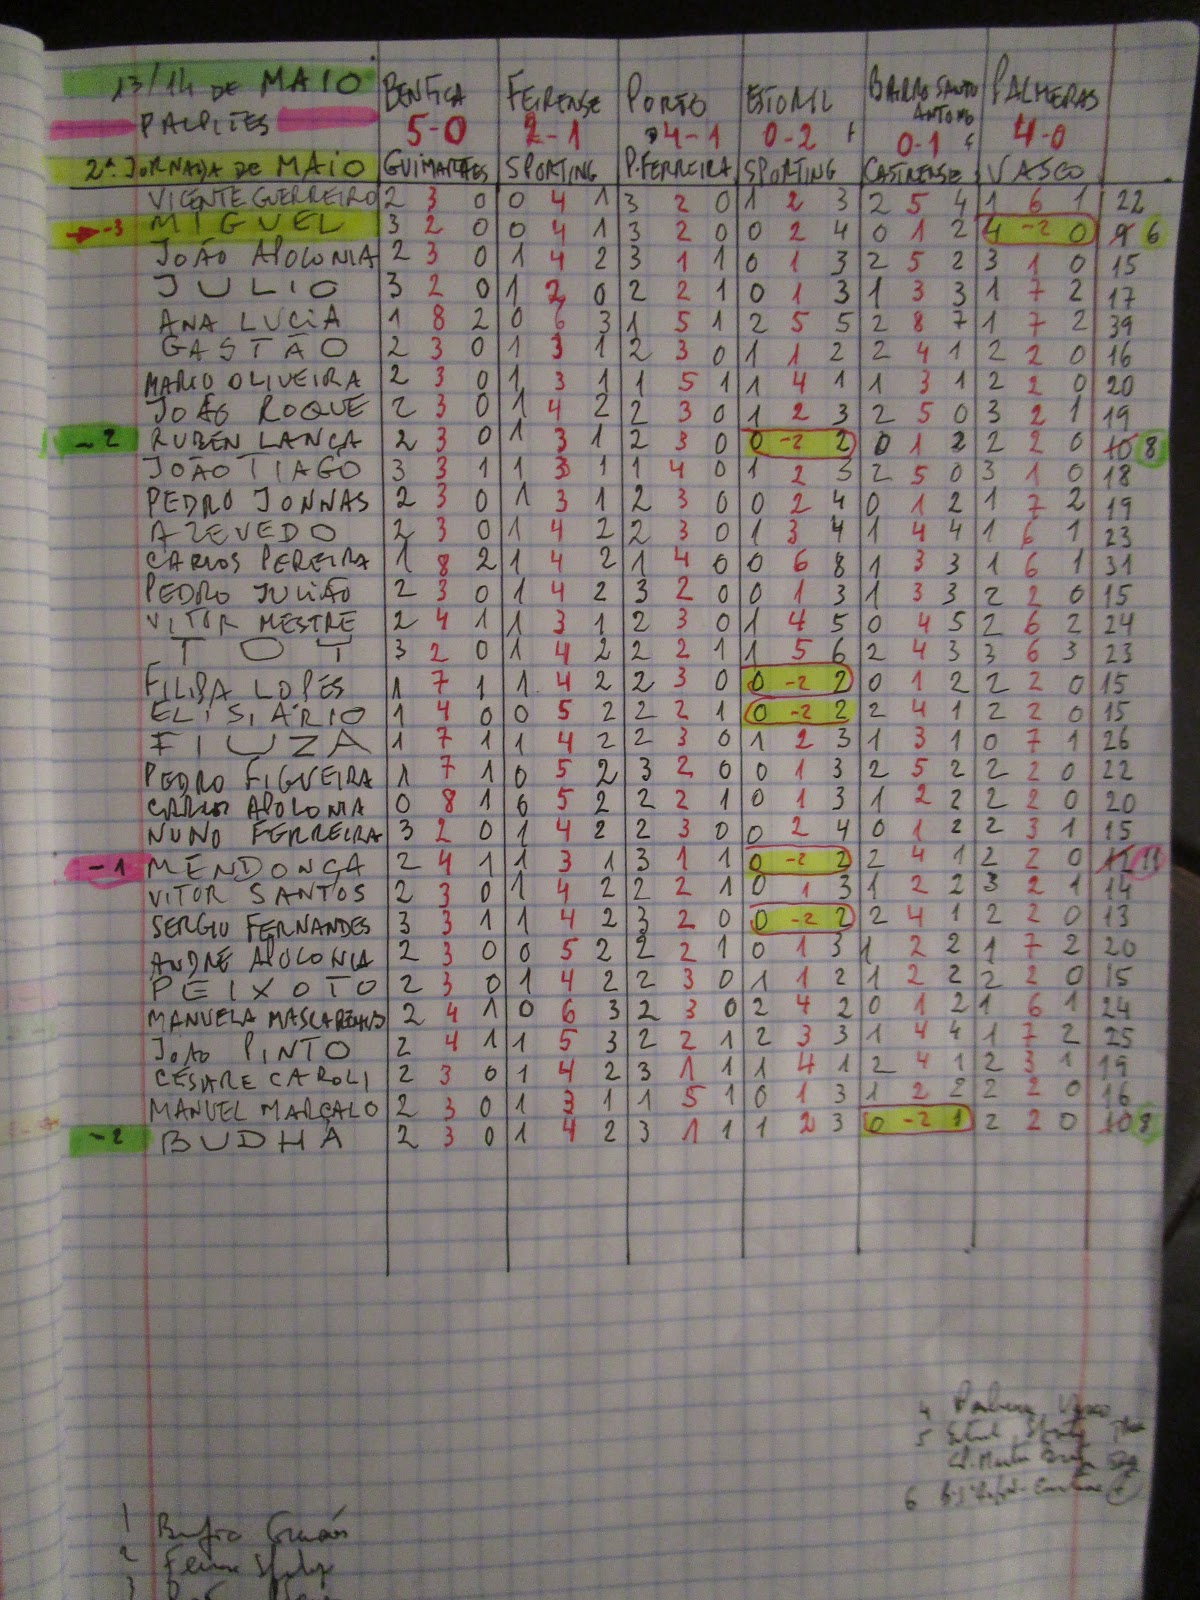 13/14 DE MAIO BENFICA FEIRENSE PORTO ESTORIL BAIRRO SANTO ANTONIO PALMEIRAS
PALPITES 5-0 2-1 4-1 0-2 F 0-1 F 4-0
2ª JORNADA DE MAIO GUIMARÃES SPORTING P.FERREIRA SPORTING CASTRENSE VASCO
VICENTE GUERREIRO 2 3 0 0 4 1 3 2 0 1 2 3 2 5 4 1 6 1 22
-3 MIGUEL 3 2 0 0 4 1 3 2 0 0 2 4 0 1 2 4 -2 0 9 6
JOÃO APOLONIA 2 3 0 1 4 2 3 1 1 0 1 3 2 5 2 3 1 0 15
JULIO 3 2 0 1 2 0 2 2 1 0 1 3 1 3 3 1 7 2 17
ANA LUCIA 1 8 2 0 6 3 1 5 1 2 5 5 2 8 7 1 7 2 39
GASTÃO 2 3 0 1 3 1 2 3 0 1 1 2 2 4 1 2 2 0 16
MARCO OLIVEIRA 2 3 0 1 3 1 1 5 1 1 4 1 1 3 1 2 2 0 20
JOÃO ROQUE 2 3 0 1 4 2 2 3 0 1 2 3 2 5 0 3 2 1 19
-2 RUBEN LANÇA 2 3 0 1 3 1 2 3 0 0 -2 2 0 1 2 2 2 0 10 8
JOÃO TIAGO 3 3 1 1 3 1 1 4 0 1 2 3 2 5 0 3 1 0 18
PEDRO JONNAS 2 3 0 1 3 1 2 3 0 0 2 4 0 1 2 1 7 2 19
AZEVEDO 2 3 0 1 4 2 2 3 0 1 3 4 1 4 4 1 6 1 23
CARLOS PEREIRA 1 8 2 1 4 2 1 4 0 0 6 8 1 3 3 1 6 1 31
PEDRO JULIÃO 2 3 0 1 4 2 3 2 0 0 1 3 1 3 3 2 2 0 15
VITOR MESTRE 2 4 1 1 3 1 2 3 0 1 4 5 0 4 5 2 6 2 24
TOY 3 2 0 1 4 2 2 2 1 1 5 6 2 4 3 3 6 3 23
FILIPA LOPES 1 7 1 1 4 2 2 3 0 0 -2 2 0 1 2 2 2 0 15
ELISIÁRIO 1 4 0 0 5 2 2 2 1 0 -2 2 2 4 1 2 2 0 15
FIUZA 1 7 1 1 4 2 2 3 0 1 2 3 1 3 1 0 7 1 26
PEDRO FIGUEIRA 1 7 1 0 5 2 3 2 0 0 1 3 2 5 2 2 2 0 22
CARLOS APOLONIA 0 8 1 0 5 2 2 2 1 0 1 3 1 2 2 2 2 0 20
NUNO FERREIRA 3 2 0 1 4 2 2 3 0 0 2 4 0 1 2 2 3 1 15
-1 MENDONÇA 2 4 1 1 3 1 3 1 1 0 -2 2 2 4 1 2 2 0 12 11
VITOR SANTOS 2 3 0 1 4 2 2 2 1 0 1 3 1 2 2 3 2 1 14
SERGIO FERNANDES 3 3 1 1 4 2 3 2 0 0 -2 2 2 4 1 2 2 0 13
ANDRÉ APOLONIA 2 3 0 0 5 2 2 2 1 0 1 3 1 2 2 1 7 2 20
PEIXOTO 2 3 0 1 4 2 2 3 0 1 1 2 1 2 2 2 2 0 15
MANUELA MASCARENHAS 2 4 1 0 6 3 2 3 0 2 4 2 0 1 2 1 6 1 24
JOÃO PINTO 2 4 1 1 5 3 2 2 1 2 3 3 1 4 4 1 7 2 25
CESARE CAROLI 2 3 0 1 4 2 3 1 1 1 4 1 2 4 1 2 3 1 19
MANUEL MARÇALO 2 3 0 1 3 1 1 5 1 0 1 3 1 2 2 2 2 0 16
-2 BUDHA 2 3 0 1 4 2 3 1 1 1 2 3 0 -2 1 2 2 0 10 8
4 Vasco
5
6
1
2
3